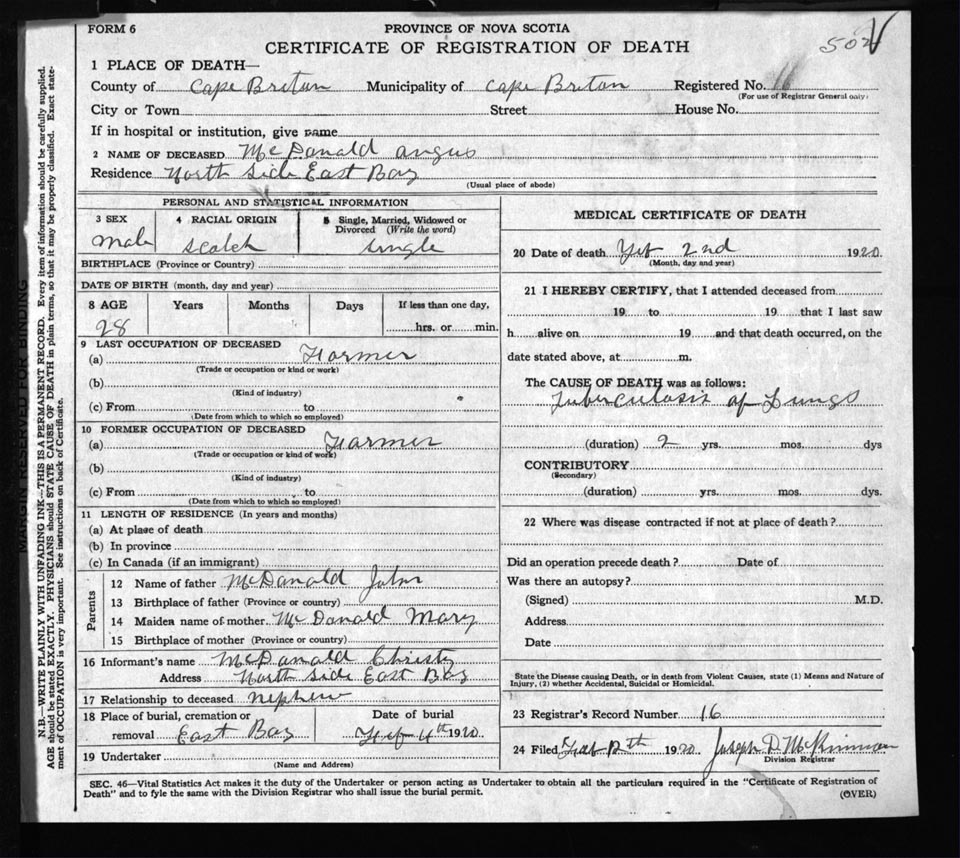 FORM 6
PROVINCE OF NOVA SCOTIA
CERTIFICATE OF REGISTRATION OF DEATH
502
1 PLACE OF DEATH—
County of Cape Briton Municipality of Cape Briton Registered No. 16
(For use of Registrar General only)
City or Town Street House No.
If in hospital or institution, give name
2 NAME OF DECEASED McDonald Angus
Residence North Side East Bay
(Usual place of abode)
PERSONAL AND STATISTICAL INFORMATION
3 SEX 4 RACIAL ORIGIN 5 Single, Married, Widowed or Divorced (Write the word)
Male Scotch Single
BIRTHPLACE (Province or Country)
DATE OF BIRTH (month, day and year)
8 AGE Years Months Days If less than one day,
28 hrs. or min.
9 LAST OCCUPATION OF DECEASED
(a) Farmer
(Trade or occupation or kind or work)
(b)
(Kind of industry)
(c) From to
(Date from which to which so employed)
10 FORMER OCCUPATION OF DECEASED
(a) Farmer
(Trade or occupation or kind of work)
(b)
(Kind of industry)
(c) From to
(Date from which to which so employed)
11 LENGTH OF RESIDENCE (In years and months)
(a) At place of death
(b) In province
(c) In Canada (if an immigrant)
Parents
12 Name of father McDanald John
13 Birthplace of father (Province or country)
14 Maiden name of mother McDanald Mary
15 Birthplace of mother (Province or country)
16 Informant's name McDanald Christy
Address North Side East Bay
17 Relationship to deceased nephew
18 Place of burial, cremation or removal East Bay
Date of burial
4th 1920
19 Undertaker
(Name and Address)
MEDICAL CERTIFICATE OF DEATH
20 Date of death 2nd 1920
(Month, day and year)
21 I HEREBY CERTIFY, that I attended deceased from
19 to 19 that I last saw
h alive on 19 and that death occurred, on the
date stated above, at m.
The CAUSE OF DEATH was as follows:
Tuberculosis of Lungs
(duration) 2 yrs. mos. dys
CONTRIBUTORY
(Secondary)
(duration) yrs. mos. dys.
22 Where was disease contracted if not at place of death?
Did an operation precede death? Date of
Was there an autopsy?
(Signed) M.D.
Address
Date
State the Disease causing Death, or in death from Violent Causes, state (1) Means and Nature of
Injury, (2) whether Accidental, Suicidal or Homicidal.
23 Registrar's Record Number 16
24 Filed 1920 Joseph D. McKinnon
Division Registrar
SEC. 46—Vital Statistics Act makes it the duty of the Undertaker or person acting as Undertaker to obtain all the particulars required in the "Certificate of Registration of
Death" and to fyle the same with the Division Registrar who shall issue the burial permit. (OVER)
MARGIN RESERVED FOR BINDING
N.B.—WRITE PLAINLY WITH UNFADING INK—THIS IS A PERMANENT RECORD. Every item of information should be carefully supplied.
AGE should be stated EXACTLY. PHYSICIANS should STATE CAUSE OF DEATH in plain terms, so that it may be properly classified. Exact state-
ment of OCCUPATION is very important. See instructions on back of Certificate.